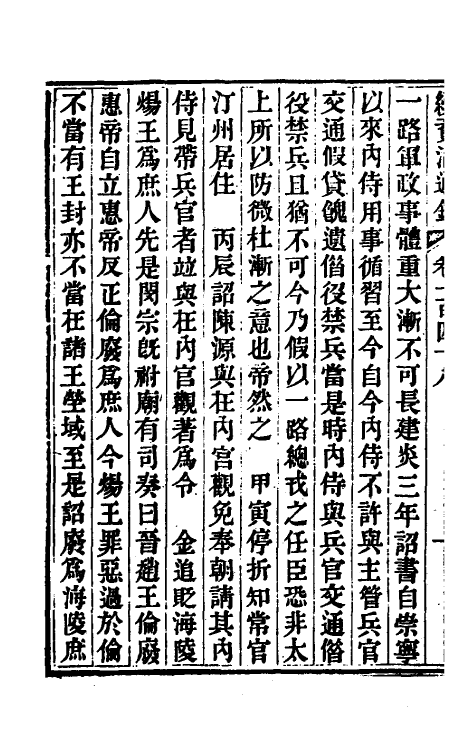 續資治通鑑 卷一百四十八
一路軍政事體重大漸不可長建炎三年詔書自崇寧
以來內侍用事循習至今自今內侍不許與主管兵官
交通假貸餽遺借役禁兵當是時內侍與兵官交通借
役禁兵且猶不可今乃假以一路總戎之任臣恐非太
上所以防微杜漸之意也帝然之 甲寅停折知常官
汀州居住 丙辰詔陳源與在內宮觀免奉朝請其內
侍見帶兵官者竝與在內宮觀著爲令 金追貶海陵
煬王爲庶人先是閔宗旣祔廟有司奏曰晉趙王倫廢
惠帝自立惠帝反正倫廢爲庶人今煬王罪惡過於倫
不當有王封亦不當在諸王塋域至是詔廢爲海陵庶